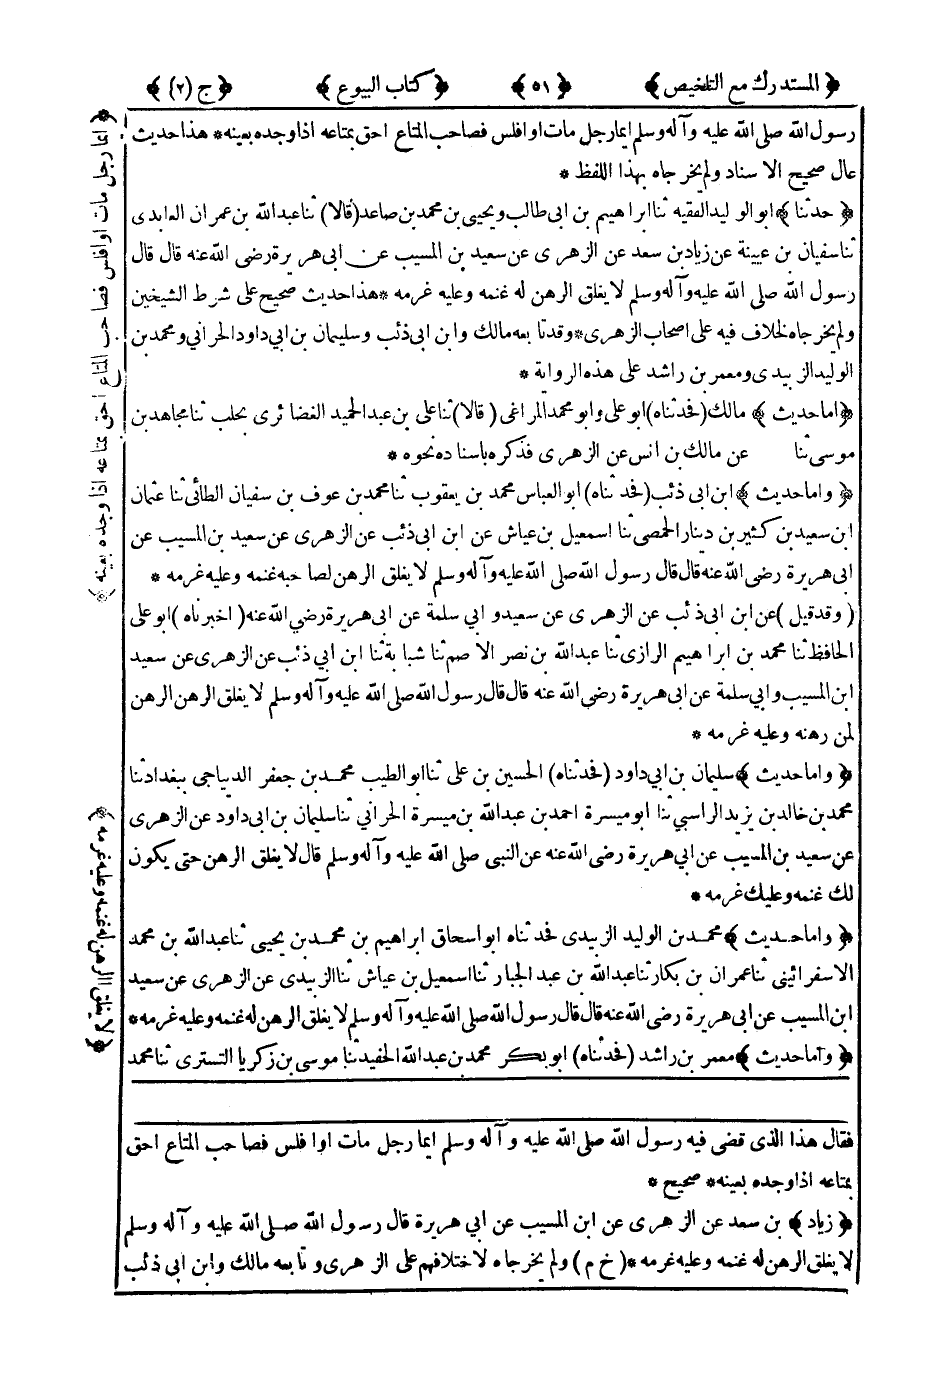 ﴿ المستدرك مع التلخيص ﴾ ﴿ ٥١ ﴾ ﴿ كتاب البيوع ﴾ ﴿ ج (٢) ﴾
رسول الله صلى الله عليه وآله وسلم ايما رجل مات او افلس فصاحب المتاع احق بمتاعه اذا وجده بعينه * هذا حديث
عال صحيح الاسناد ولم يخرجاه بهذا اللفظ *
﴿ حدثنا ﴾ ابو الوليد الفقيه ثنا ابراهيم بن ابى طالب ويحيى بن محمد بن صاعد (قالا) ثنا عبدالله بن عمران العابدى
ثنا سفيان بن عيينة عن زياد بن سعد عن الزهرى عن سعيد بن المسيب عن ابى هريرة رضى الله عنه قال قال
رسول الله صلى الله عليه وآله وسلم لا يغلق الرهن له غنمه وعليه غرمه * هذا حديث صحيح على شرط الشيخين
ولم يخرجاه لخلاف فيه على اصحاب الزهرى * وقد تابعه مالك وابن ابى ذئب وسليمان بن ابى داود الحرانى ومحمد بن
الوليد الزبيدى ومعمر بن راشد على هذه الرواية *
﴿ اما حديث ﴾ مالك (فحدثناه) ابو على وابو محمد المراغى (قالا) ثنا على بن عبد الحميد الغضائرى بحلب ثنا مجاهد بن
موسى ثنا عن مالك بن انس عن الزهرى فذكره باسناده نحوه *
﴿ واما حديث ﴾ ابن ابى ذئب (فحدثناه) ابو العباس محمد بن يعقوب ثنا محمد بن عوف بن سفيان الطائى ثنا عثمان
ابن سعيد بن كثير بن دينار الحمصى ثنا اسمعيل بن عياش عن ابن ابى ذئب عن الزهرى عن سعيد بن المسيب عن
ابى هريرة رضى الله عنه قال قال رسول الله صلى الله عليه وآله وسلم لا يغلق الرهن لصاحبه غنمه وعليه غرمه *
(وقد قيل) عن ابن ابى ذئب عن الزهرى عن سعيد وابى سلمة عن ابى هريرة رضي الله عنه (اخبرناه) ابو على
الحافظ ثنا محمد بن ابراهيم الرازى ثنا عبدالله بن نصر الاصم ثنا شبابة ثنا ابن ابي ذئب عن الزهرى عن سعيد
ابن المسيب وابي سلمة عن ابى هريرة رضى الله عنه قال قال رسول الله صلى الله عليه وآله وسلم لا يغلق الرهن الرهن
لمن رهنه وعليه غرمه *
﴿ واما حديث ﴾ سليمان بن ابى داود (فحدثناه) الحسين بن على ثنا ابو الطيب محمد بن جعفر الديباجى ببغداد ثنا
محمد بن خالد بن يزيد الراسبي ثنا ابو ميسرة احمد بن عبدالله بن ميسرة الحراني ثنا سليمان بن ابى داود عن الزهرى
عن سعيد بن المسيب عن ابي هريرة رضى الله عنه عن النبى صلى الله عليه وآله وسلم قال لا يغلق الرهن حتى يكون
لك غنمه وعليك غرمه *
﴿ واما حديث ﴾ محمد بن الوليد الزبيدى فحدثناه ابو اسحاق ابراهيم بن محمد بن يحيى ثنا عبدالله بن محمد
الاسفرائينى ثنا عمران بن بكار ثنا عبدالله بن عبد الجبار ثنا اسمعيل بن عياش ثنا الزبيدى عن الزهرى عن سعيد
ابن المسيب عن ابى هريرة رضى الله عنه قال قال رسول الله صلى الله عليه وآله وسلم لا يغلق الرهن له غنمه وعليه غرمه *
﴿ واما حديث ﴾ معمر بن راشد (فحدثناه) ابو بكر محمد بن عبدالله الحفيد ثنا موسى بن زكريا التسترى ثنا محمد
فقال هذا الذى قضى فيه رسول الله صلى الله عليه وآله وسلم ايما رجل مات او افلس فصاحب المتاع احق
بمتاعه اذا وجده بعينه * صحيح *
﴿ زياد ﴾ بن سعد عن الزهرى عن ابن المسيب عن ابي هريرة قال رسول الله صلى الله عليه وآله وسلم
لا يغلق الرهن له غنمه وعليه غرمه * (خ م) ولم يخرجاه لاختلافهم على الزهرى وتابعه مالك وابن ابى ذئب
﴿ ايما رجل مات او افلس فصاحب المتاع احق بمتاعه اذا وجده بعينه ﴾
﴿ لا يغلق الرهن له غنمه وعليه غرمه ﴾